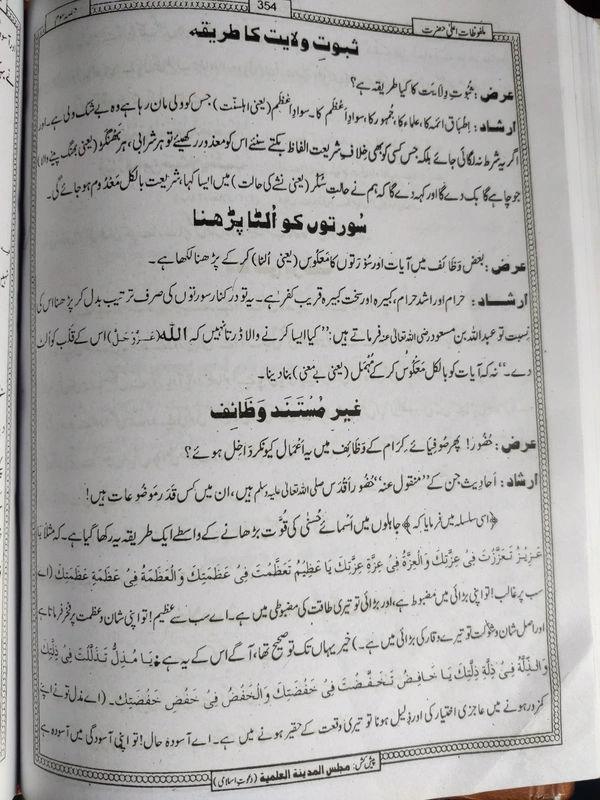 ملفوظاتِ اعلیٰ حضرت 354 حصہ سوم
ثبوتِ ولایت کا طریقہ
عرض : ثبوتِ ولایت کا کیا طریقہ ہے؟
ارشاد : اِطباق ائمہ کا، علماء کا، جُمہور کا، سوادِ اعظم کا۔ سوادِ اعظم (یعنی اہلسنّت) جس کو ولی مان رہا ہے وہ بے شک ولی ہے۔ اور
اگر یہ شرط نہ لگائی جائے بلکہ جس کسی کو بھی خلافِ شریعت الفاظ بکتے سنئے اس کو معذور رکھیئے تو ہر شرابی، ہر بھنگڑ (یعنی بھنگ پینے والا)
جو چاہے گا بک دے گا اور کہہ دے گا کہ ہم نے حالتِ سُکر (یعنی نشے کی حالت) میں ایسا کہا، شریعت بالکل مَعْدُوم ہو جائے گی۔
سُورتوں کو اُلٹا پڑھنا
عرض : بعض وظائف میں آیات اور سُورتوں کا مَعکُوس (یعنی اُلٹا) کر کے پڑھنا لکھا ہے۔
ارشاد : حرام اور اشد حرام، کبیرہ اور سخت کبیرہ قریبِ کفر ہے۔ یہ تو درکنار سورتوں کی صرف ترتیب بدل کر پڑھنا اس کی
نسبت تو عبداللہ بن مسعود رضی اللہ تعالیٰ عنہ فرماتے ہیں: ’’کیا ایسا کرنے والا ڈرتا نہیں کہ اللّٰہ (عَزَّوَجَلَّ) اس کے قَلْب کو اُلٹ
دے۔‘‘ نہ کہ آیات کو بالکل مَعکُوس کر کے مُہْمَل (یعنی بے مَعنی) بنا دینا۔
غیر مُسْتَنَد وَظَائِف
عرض : حُضُور! پھر صُوفیائے کِرَام کے وَظَائِف میں یہ اَعْمَال کیونکر دَاخِل ہوئے؟
ارشاد : اَحادِیث جن کے ’’منقول عنہ‘‘ حُضُورِ اَقدَس صلی اللہ تعالیٰ علیہ وسلم ہیں، ان میں کس قَدَر مَوضُوعات ہیں!
﴿اسی سلسلہ میں فرمایا کہ﴾ جاہلوں میں اَسمائے حُسْنٰی کی قُوَّت بڑھانے کے واسطے ایک طریقہ یہ رکھا گیا ہے۔ کہ مثلاً یَا
عَزِیْزُ تَعَزَّزْتَ فِیْ عِزَّتِکَ وَالْعِزَّۃُ فِیْ عِزَّۃِ عِزَّتِکَ یَا عَظِیْمُ تَعَظَّمْتَ فِیْ عَظَمَتِکَ وَالْعَظَمَۃُ فِیْ عَظَمَۃِ عَظَمَتِکَ (اے
سب پر غالب! تو اپنی بڑائی میں مضبوط ہے، اور بڑائی تو تیری طاقت کی مضبوطی میں ہے۔ اے سب سے عظیم! تو اپنی شان وعظمت پر فخر فرماتا ہے
اور اصل شان وشوکت تو تیرے وقار کی بڑائی میں ہے۔) خیر یہاں تک تو صحیح تھا، آگے اس کے یہ ہے: یَا مُذِلُّ تَذَلَّلْتَ فِیْ ذِلَّتِکَ
وَالذِّلَّۃُ فِیْ ذِلَّۃِ ذِلَّتِکَ یَا خَافِضُ تَخَفَّضْتَ فِیْ خَفْضَتِکَ وَالْخَفْضُ فِیْ خَفْضِ خَفْضَتِکَ۔ (اے مذل تو نے اپنے
کمزور ہونے میں عاجزی اختیار کی اور ذلیل ہونا تو تیری وقعت کے حقیر ہونے میں ہے۔ اے آسودہ حال! تو اپنی آسودگی میں آسودہ ہے
پیش کش: مجلس المدینة العلمیة (دعوتِ اسلامی)